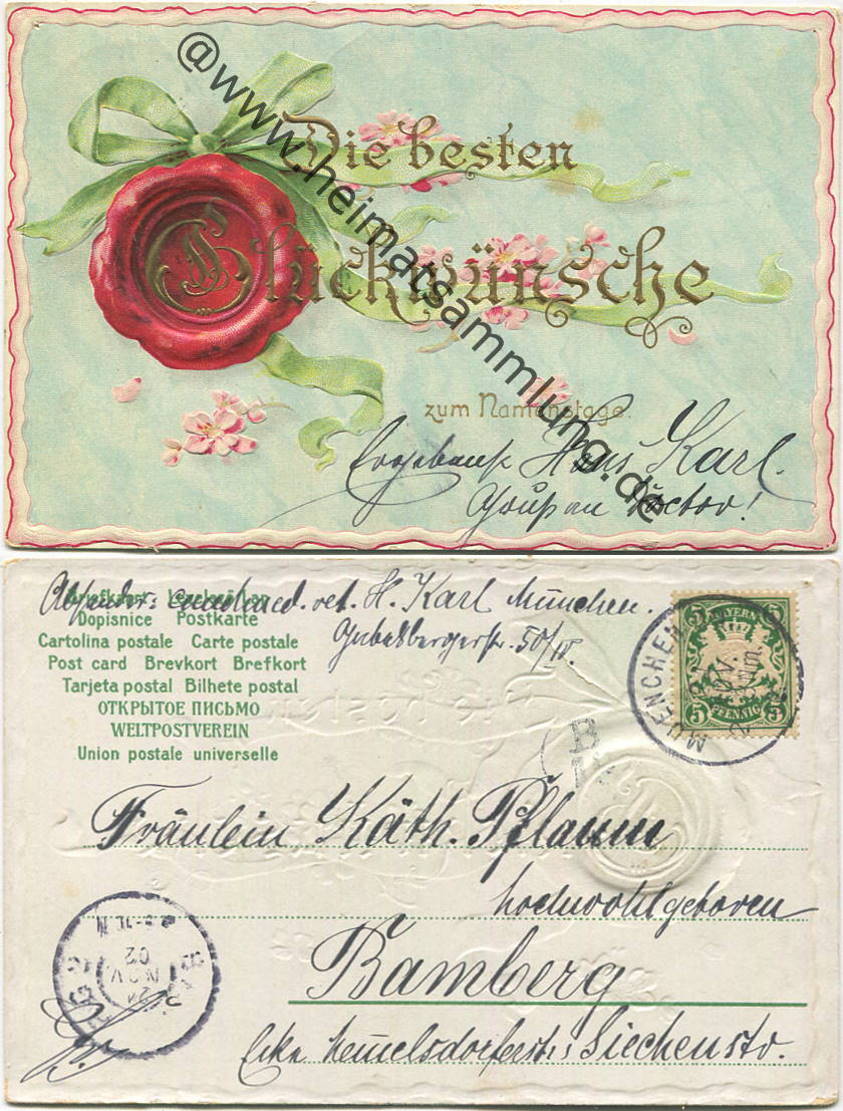 @www.heimatsammlung.de
Die besten
Glückwünsche
zum Namenstage.
Hans Karl.
Doctor!
Absender: cand. med. vet. H. Karl München.
50/IV.
Briefkaart Levelező-lap
Dopisnice Postkarte
Cartolina postale Carte postale
Post card Brevkort Brefkort
Tarjeta postal Bilhete postal
ОТКРЫТОЕ ПИСЬМО
WELTPOSTVEREIN
Union postale universelle
BAYERN
5 5
5 PFENNIG 5
MUENCHEN
NOV.
Fräulein Käth. Pflaum
hochwohlgeboren
Bamberg
Ecke Hemmelsdorferstr. Siechenstr.
NOV.
02